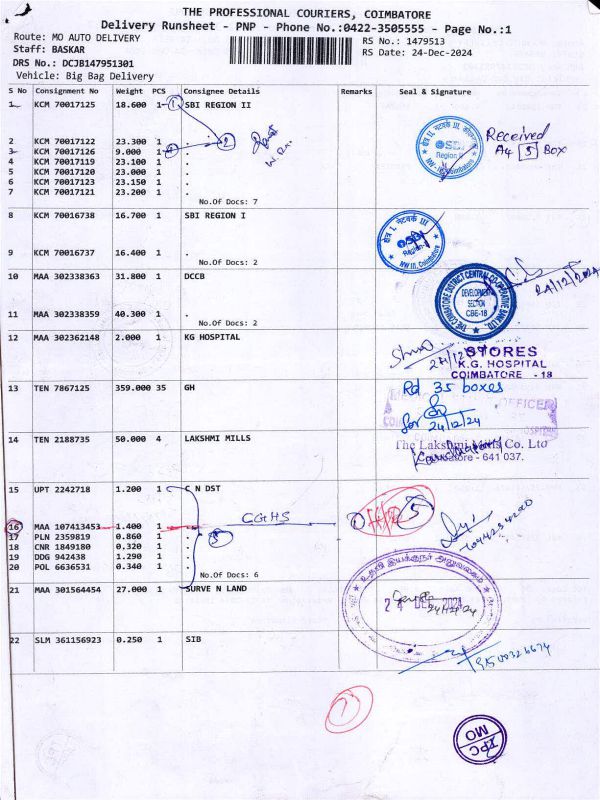 THE PROFESSIONAL COURIERS, COIMBATORE
Delivery Runsheet - PNP - Phone No.:0422-3505555 - Page No.:1
Route: MO AUTO DELIVERY
RS No.: 1479513
Staff: BASKAR
RS Date: 24-Dec-2024
DRS No.: DCJB147951301
Vehicle: Big Bag Delivery
S No Consignment No Weight PCS Consignee Details Remarks Seal & Signature
1 KCM 70017125 18.600 1 1 SBI REGION II
2 KCM 70017122 23.300 1 . 2
Received
A4 5 Box
3 KCM 70017126 9.000 1 .
4 KCM 70017119 23.100 1 .
5 KCM 70017120 23.000 1 .
6 KCM 70017123 23.150 1 .
7 KCM 70017121 23.200 1 .
No.Of Docs: 7
SBI
Region
8 KCM 70016738 16.700 1 SBI REGION I
9 KCM 70016737 16.400 1 .
No.Of Docs: 2
Region
NW III, Coimbatore
10 MAA 302338363 31.800 1 DCCB
24/12/2024
11 MAA 302338359 40.300 1 .
No.Of Docs: 2
THE COIMBATORE DISTRICT CENTRAL CO-OPERATIVE BANK LTD.
DEVELOPMENT
SECTION
CBE-18
12 MAA 302362148 2.000 1 KG HOSPITAL
STORES
K.G. HOSPITAL
COIMBATORE - 18
13 TEN 7867125 359.000 35 GH
Rd 35 boxes
OFFICER
for
24/12/24
14 TEN 2188735 50.000 4 LAKSHMI MILLS
The Lakshmi Mills Co. Ltd
Coimbatore - 641 037.
15 UPT 2242718 1.200 1 C N DST
16 MAA 107413453 1.400 1 . CGHS
5
17 PLN 2359819 0.860 1 .
18 CNR 1849180 0.320 1 .
19 DDG 942438 1.290 1 .
20 POL 6636531 0.340 1 .
No.Of Docs: 6
21 MAA 301564454 27.000 1 SURVE N LAND
உதவி இயக்குநர் அலுவலகம்
24 DEC 2024
22 SLM 361156923 0.250 1 SIB
TPC
MO